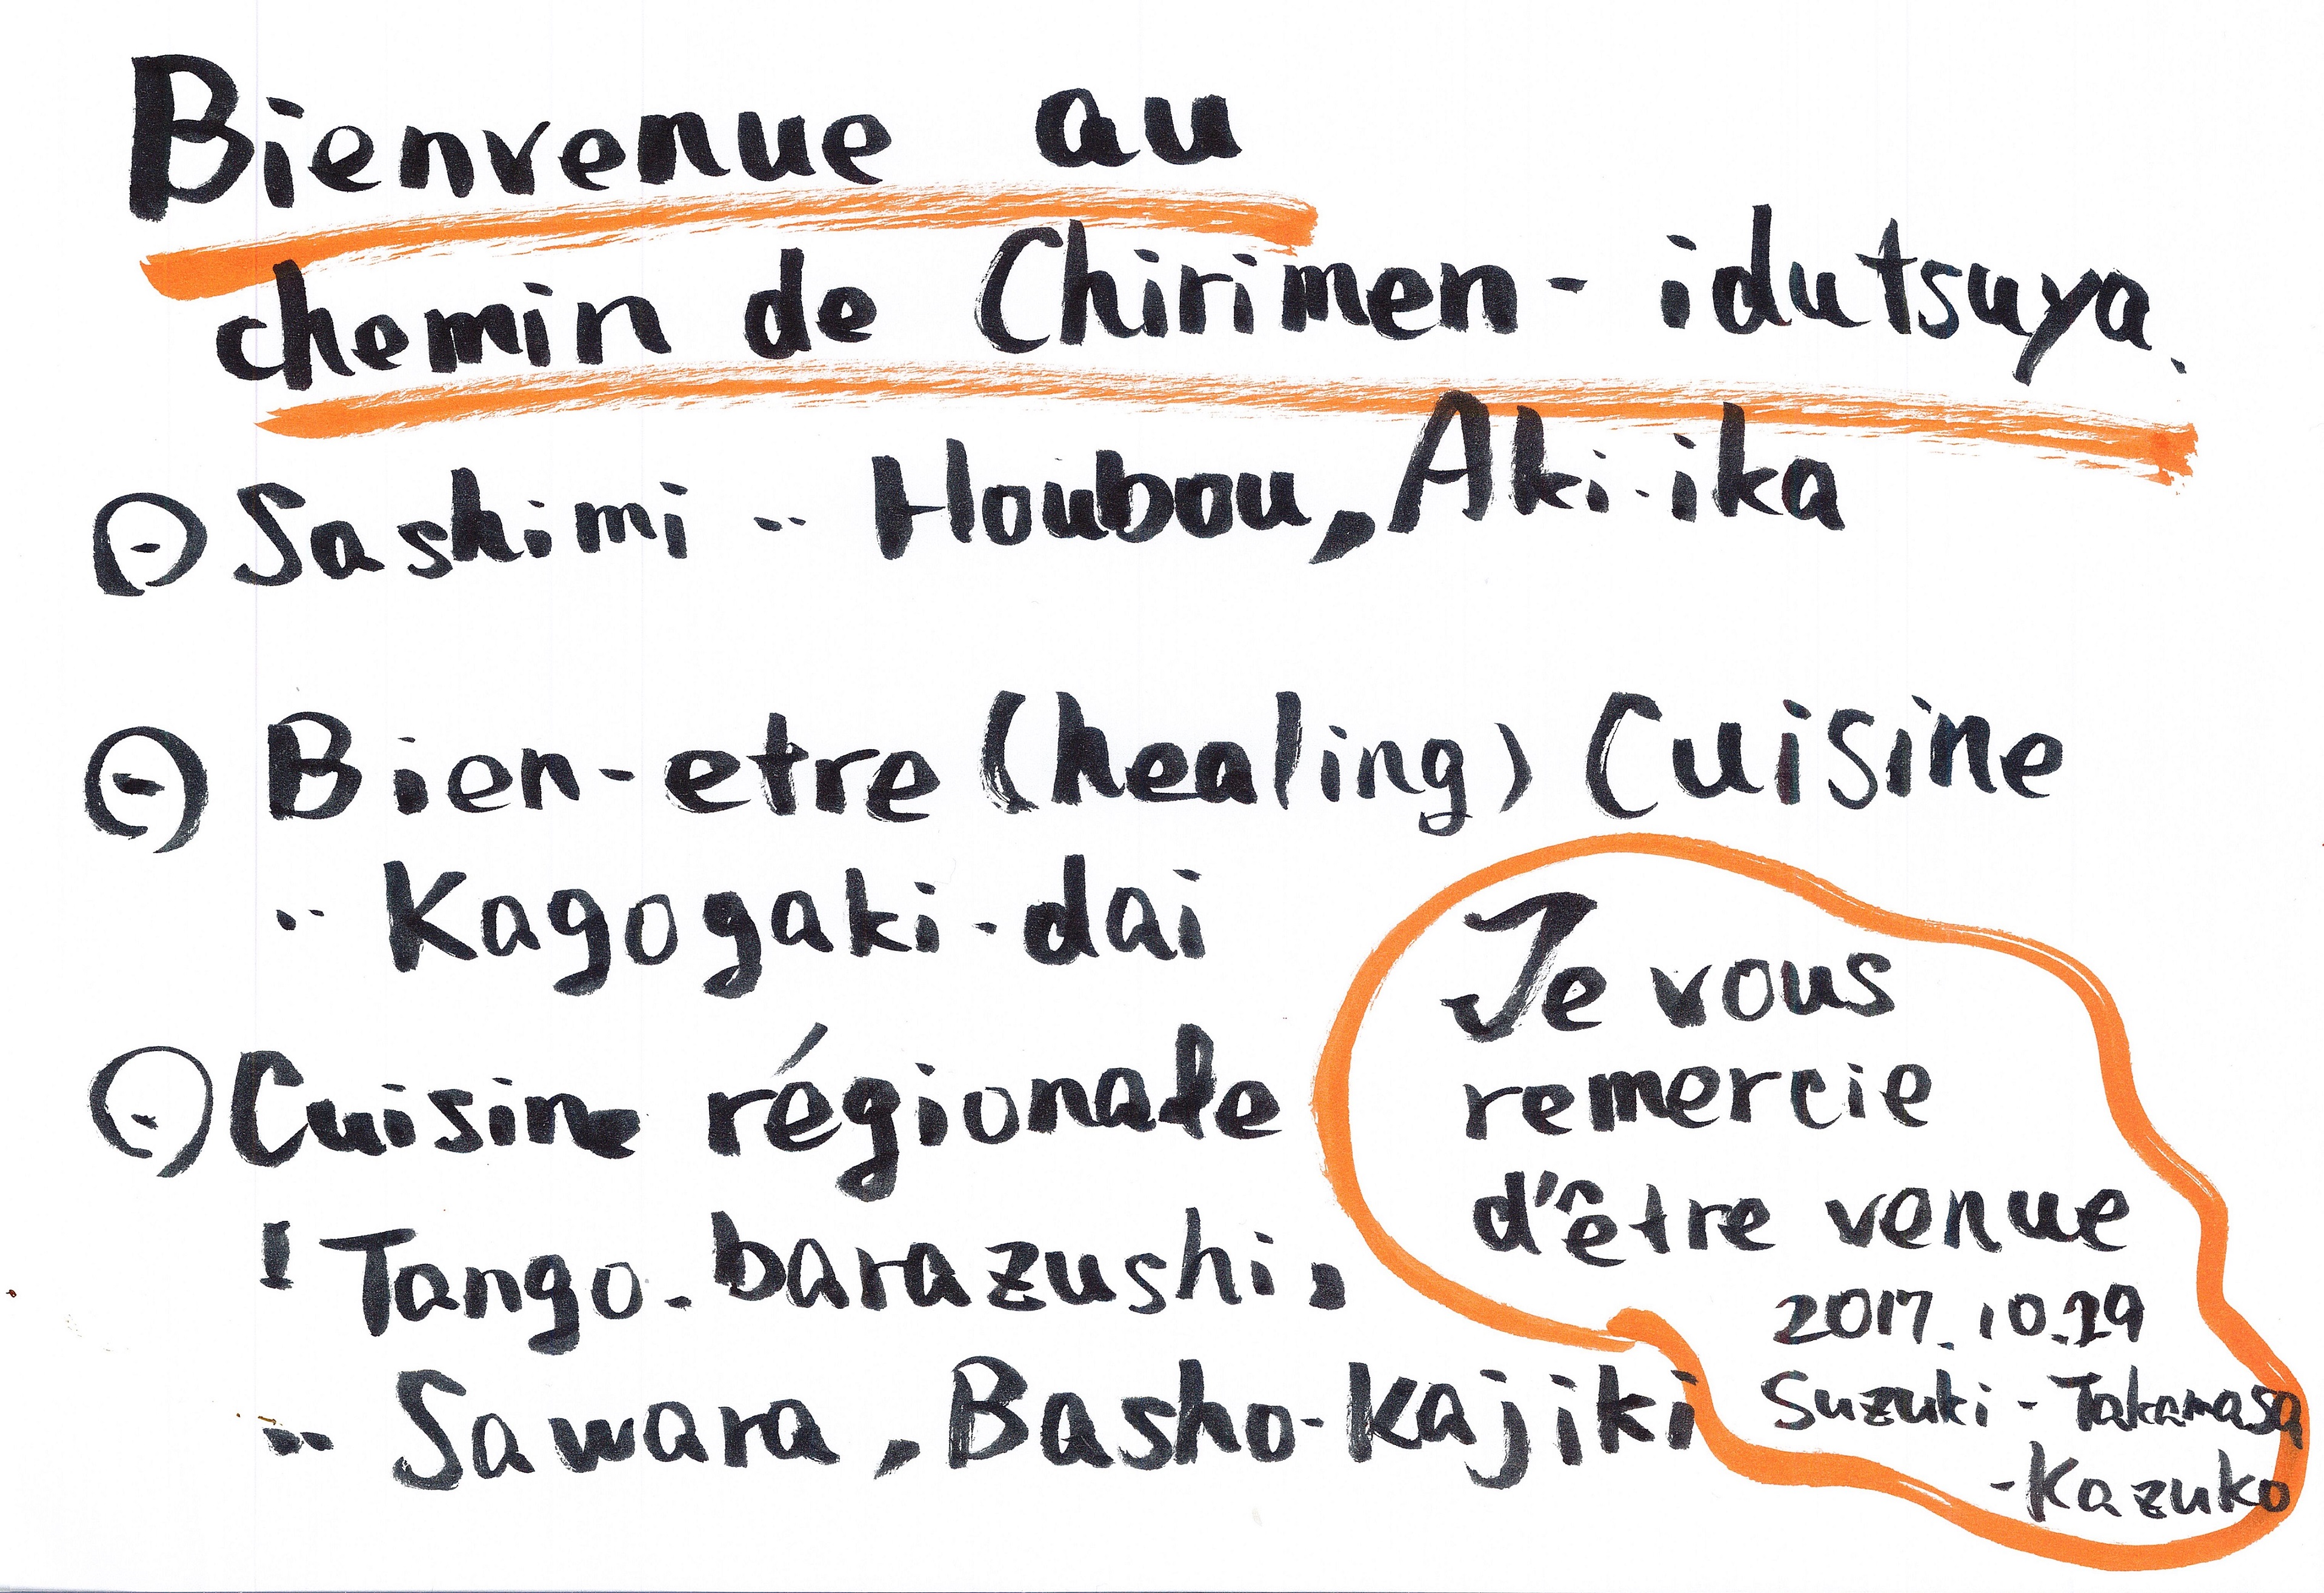 Bienvenue au
chemin de Chirimen - idutsuya.
Sashimi ‥ Houbou, Aki-ika
Bien-etre (healing) Cuisine
‥ Kagogaki-dai
Cuisine régionale
! Tango-barazushi,
‥ Sawara, Basho-kajiki
Je vous
remercie
d'être venue
2017.10.29
Suzuki - Takamasa
-Kazuko